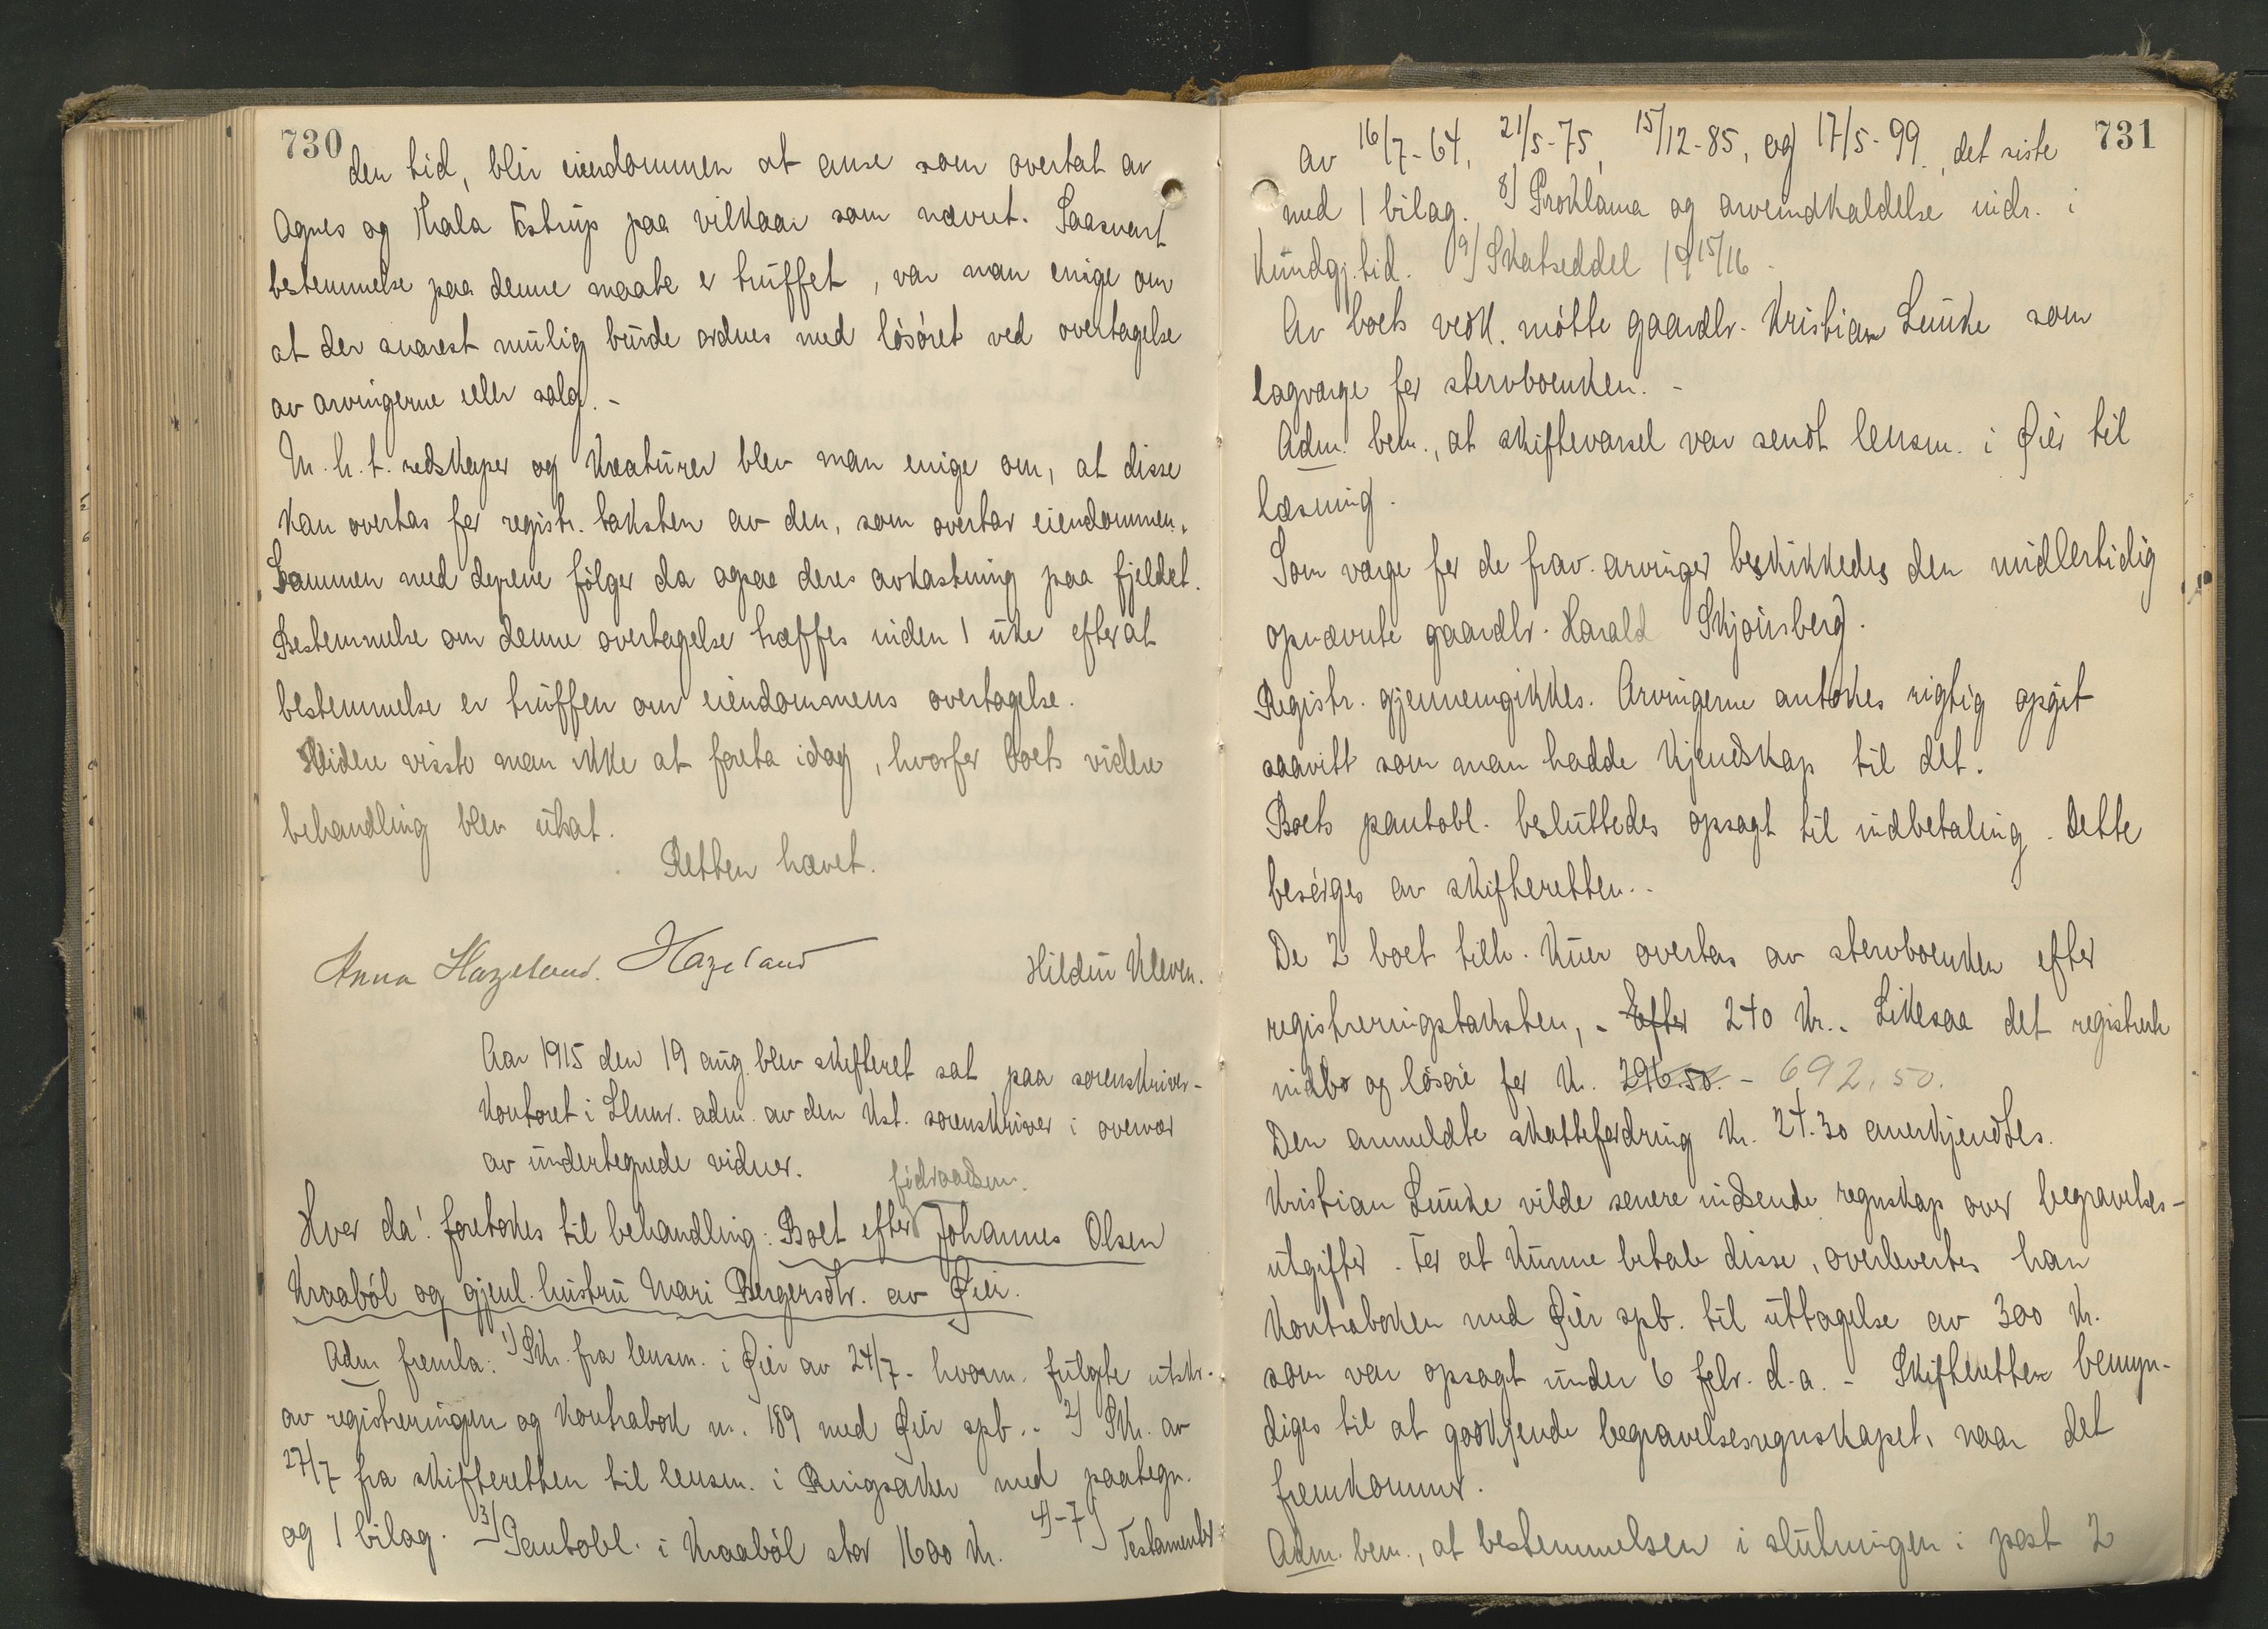 730
den tid, blir eiendommen at anse som overtat av
Agnes og Thala Estrup paa vilkaar som nævnt. Saasnart
bestemmelse paa denne maate er truffet, var man enige om
at der snarest mulig burde ordnes med løsøret ved overtagelse
av arvingerne eller salg. -
M. h. t. redskaper og kreaturer blev man enige om, at disse
kan overtas for registr. taksten av den, som overtar eiendommen.
Sammen med dyrene følger da ogsaa deres avkastning paa fjeldet.
Bestemmelse om denne overtagelse træffes inden 1 uke efterat
bestemmelse er truffen om eiendommens overtagelse.
Videre visste man ikke at foreta idag, hvorfor boets videre
behandling blev utsat.
Retten hævet.
Anna Hazeland. Hazeland Hildur Kleven.
Aar 1915 den 19 aug. blev skifteret sat paa sorenskriver-
kontoret i Llhmr. adm. av den kst. sorenskriver i overvær
av undertegnede vidner.
födraadsm.
Hvor da! foretokes til behandling: Boet efter Johannes Olsen
Kraaböl og gjenl. hustru Mari Bergersdtr. av Øier.
Adm fremla: 1) Skr. fra lensm. i Øier av 24/7 - hvorm. fulgte utskr.
av registreringen og kontrabok nr. 189 med Øier spb. - 2) Skr. av
27/7 fra skifteretten til lensm. i Ringsaker med paategn.
og 1 bilag. 3) Pantobl. i Kraaböl stor 1600 kr. 4)-7) Testamenter
731
av 16/7-64, 21/5-75, 15/12-85, og 17/5-99, det siste
med 1 bilag. 8) Proklama og arveindkaldelse indr. i
Kundgj.tid. 9) Skatseddel 1915/16.
Av boets vedk. mötte gaardbr. Kristian Lunke som
lagværge for stervboenken. -
Adm. bem., at skiftevarsel var sendt lensm. i Øier til
læsning.
Som værge for de frav. arvinger beskikkedes den midlertidig
opnævnte gaardbr. Harald Skjønsberg.
Registr. gjennemgikkes. Arvingerne antokes rigtig opgit
saavitt som man hadde kjendskap til det.
Boets pantobl. besluttedes opsagt til indbetaling. Dette
besörges av skifteretten. -
De 2 boet tilh. kuer overtas av stervboenken efter
registreringstaksten, - Efter 240 kr. - Likesaa det registrerte
indbo og lösöre for kr. 296.50. - 692,50.
Den anmeldte skattefordring kr. 24.30 anerkjendtes.
Kristian Lunke vilde senere indsende regnskap over begravelses-
utgifter. For at kunne betale disse, overlevertes han
kontraboken med Øier spb. til uttagelse av 300 kr.
som var opsagt under 6 febr. d.a. - Skifteretten bemyn-
diges til at godkjende begravelsesregnskapet, naar det
fremkommer.
Adm. bem., at bestemmelsen i slutningen i post 2